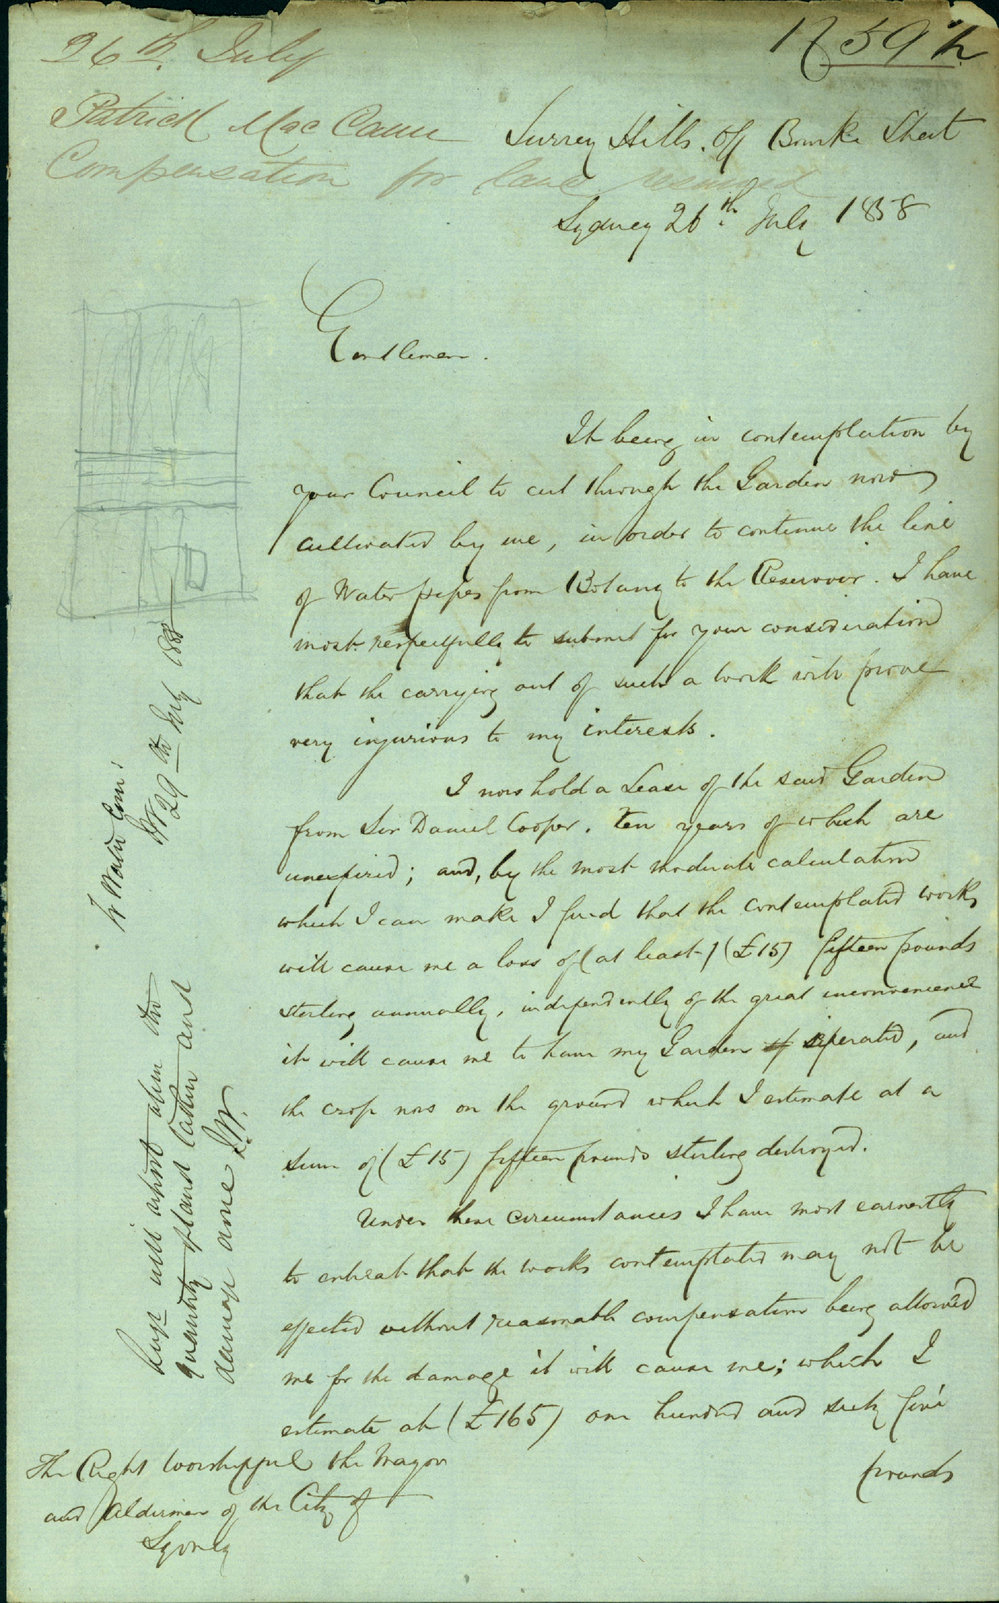 26th. July
Patrick Mac
Compensation for land resumed
Surrey Hills. Off Bourke Street
Sydney 26th July 1858
Gentlemen.
It being in contemplation by
your Council to cut through the Garden now
cultivated by me, in order to continue the line
of Water pipes from Botany to the Reservoir. I have
most respectfully to submit for your consideration
that the carrying out of such a work will prove
very injurious to my interests.
I now hold a Lease of the said Garden
from Sir Daniel Cooper. ten years of which are
unexpired; and, by the most moderate calculation
which I can make I find that the contemplated works
will cause me a loss of (at least) (£15) fifteen pounds
sterling annually, independently of the great inconvenience
it will cause me to have my Garden seperated, and
the crop now on the ground which I estimate at a
sum of (£15) fifteen pounds sterling destroyed.
Under these circumstances I have most earnestly
to entreat that the works contemplated may not be
effected without reasonable compensation being allowed
me for the damage it will cause me; which I
estimate at (£165) one hundred and sixty five
pounds
The Right Worshipful the Mayor
and Aldermen of the City of
Sydney
Water Com:
29th July
will report upon the
quantity of land taken and
damage done